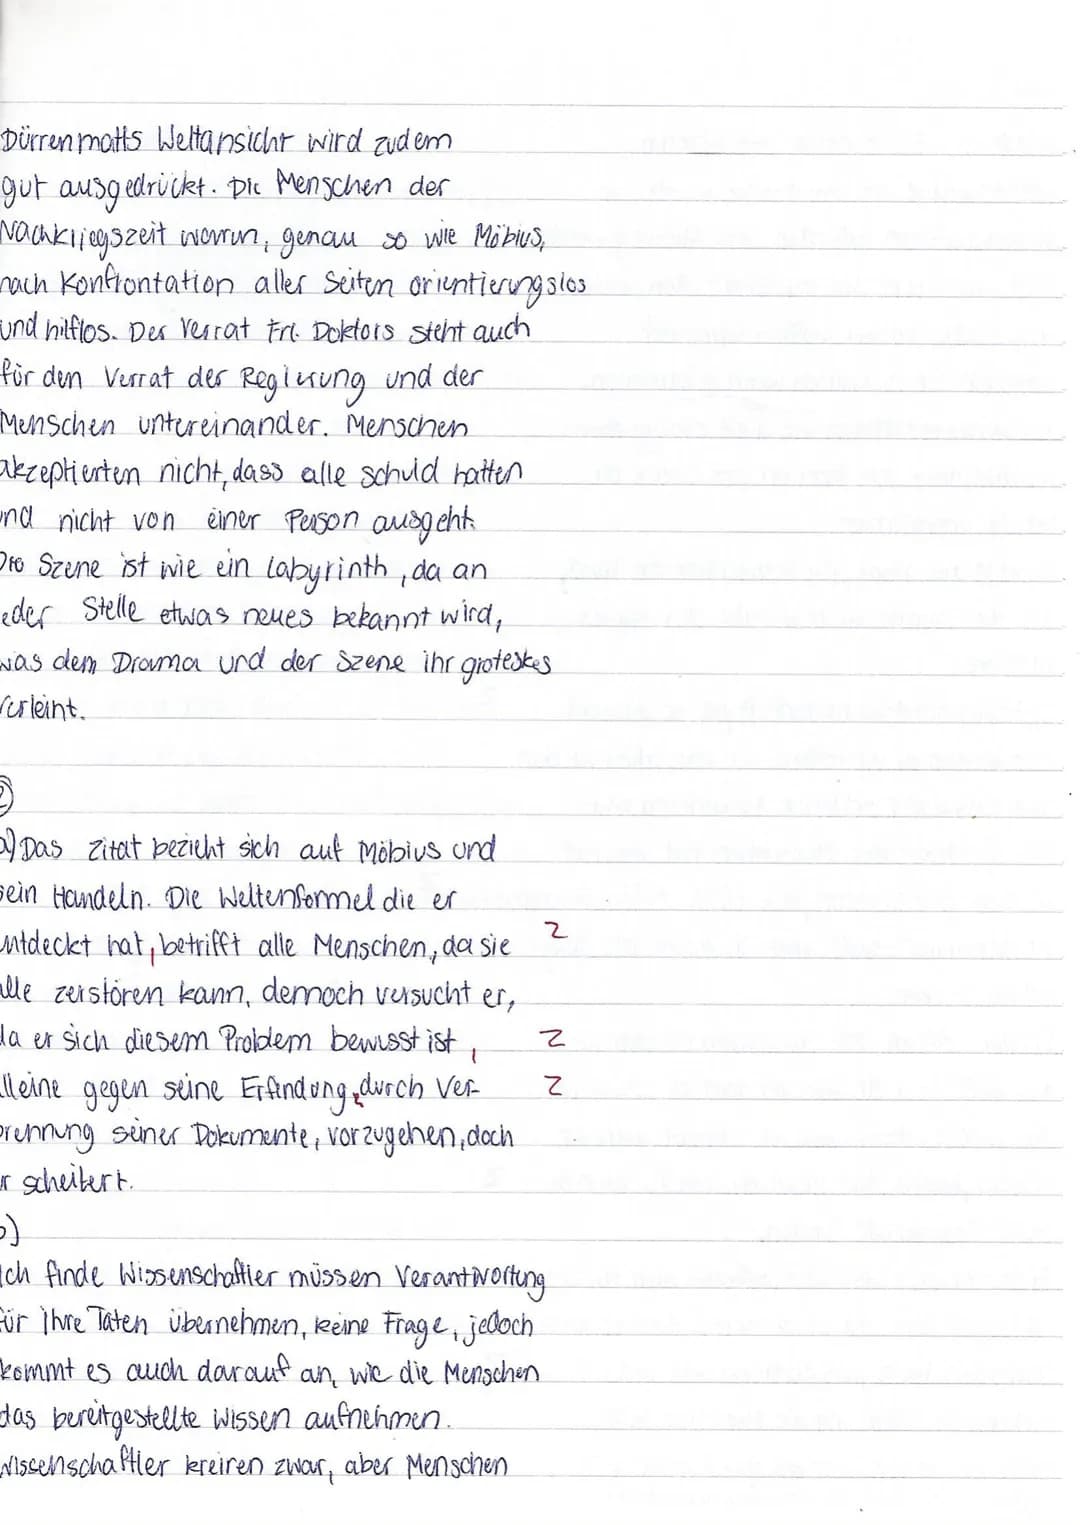 Dürrenmatts Weltansicht wird zudem
gut ausgedrückt. Die Menschen der
Nachkriegszeit waren, genau so wie Möbius,
nach Konfrontation aller Seiten orientierungslos
und hilflos. Der Verrat Frl. Doktors steht auch
für den Verrat der Regierung und der
Menschen untereinander. Menschen
akzeptierten nicht, dass alle schuld hatten
und nicht von einer Person ausgeht.
Die Szene ist wie ein Labyrinth, da an
eder Stelle etwas neues bekannt wird,
was dem Drama und der Szene ihr groteskes
verleint.
2
a) Das Zitat bezieht sich auf Möbius und
sein Handeln. Die Weltenformel die er
entdeckt hat, betrifft alle Menschen, da sie Z
alle zerstören kann, dennoch versucht er,
da er sich diesem Problem bewusst ist, Z
lleine gegen seine Erfindung, durch Ver- Z
brennung seiner Dokumente, vorzugehen, doch
er scheitert.
b)
Ich finde Wissenschaftler müssen Verantwortung
für ihre Taten übernehmen, keine Frage, jedoch
kommt es auch darauf an, wie die Menschen
das bereitgestellte Wissen aufnehmen.
Wissenschaftler kreiren zwar, aber Menschen